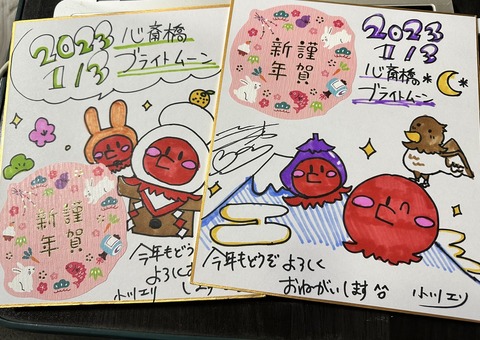 2023
1/3
心斎橋
ブライトムーン
謹賀
新年
今年もどうぞ
よろしく
小川エリ
2023
1/3
心斎橋
ブライトムーン
謹賀
新年
今年もどうぞ よろしく
おねがいします^^
小川エリ